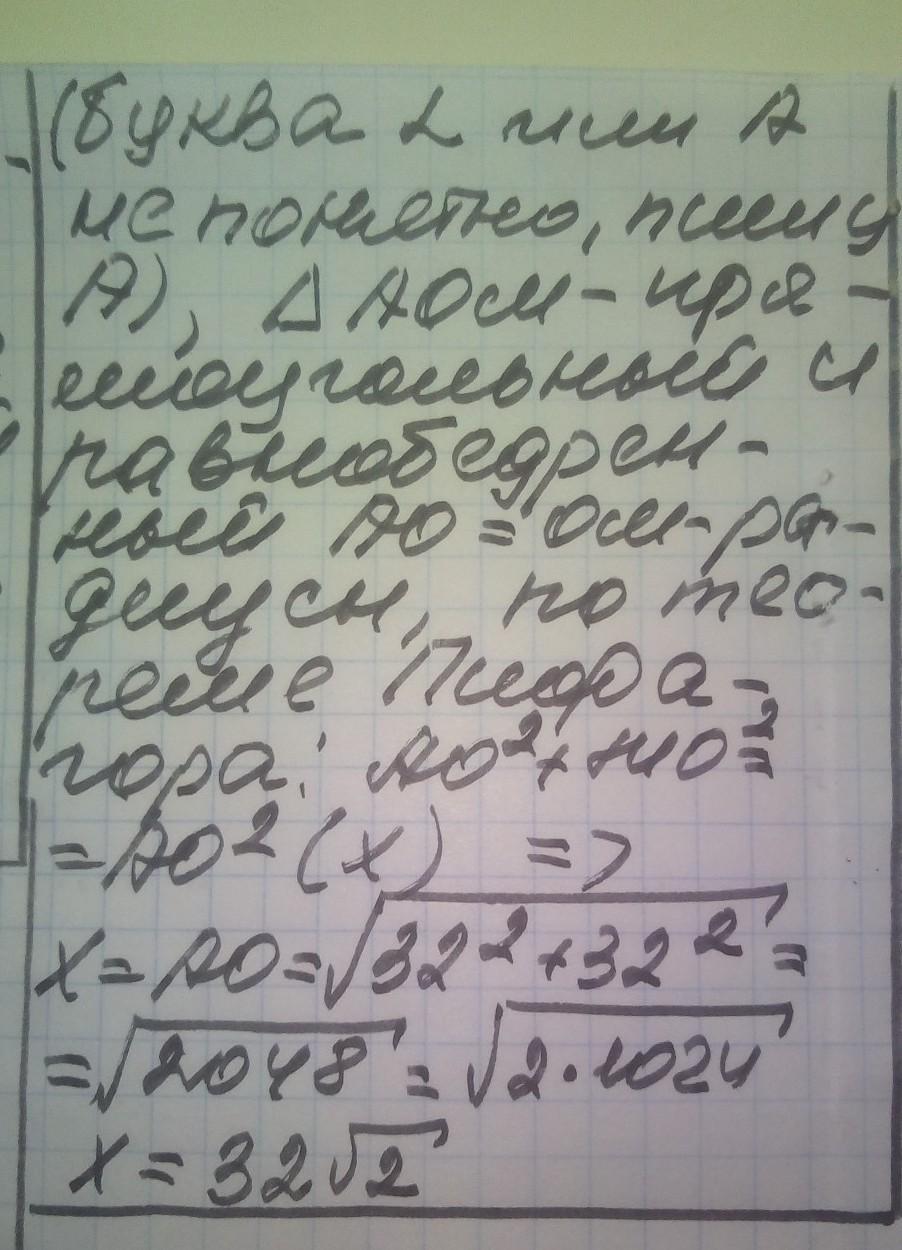 (буква L или А
не понятно, пишу
А), △ АОМ - пря-
моугольный и
равнобедрен-
ный АО = ОМ - ра-
диусы, по тео-
реме Пифа-
гора: АО² + МО² =
= АО² (x) =>
x = АО = √32² + 32² =
= √2048 = √2·1024
x = 32√2